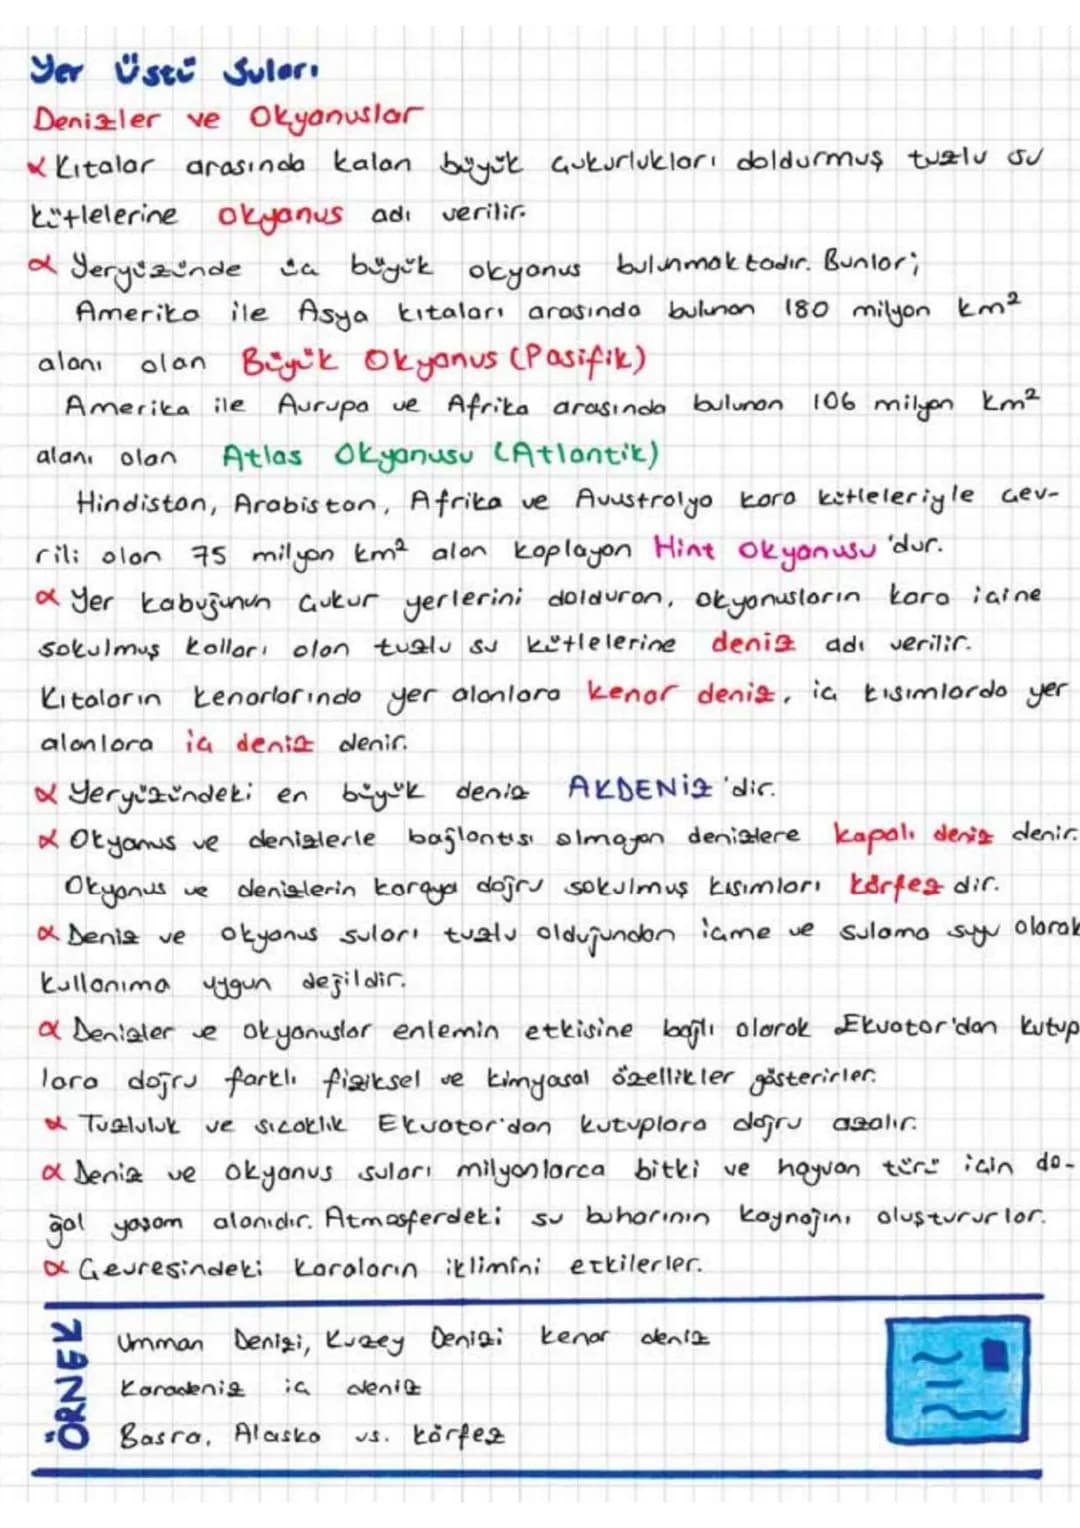 Yer Üstü Suları
Denizler ve Okyanuslar
Kıtalar arasında kalan büyük çukurlukları doldurmuş tuzlu su
kütlelerine okyanus adı verilir.
Yeryüzünde üç büyük okyanus bulunmaktadır. Bunlar;
Amerika ile Asya kıtaları arasında bulunan 180 milyon km²
alanı olan Büyük Okyanus (Pasifik)
Amerika ile Avrupa ve Afrika arasında bulunan 106 milyon km²
alanı olan Atlas Okyanusu (Atlantik)
Hindistan, Arabistan, Afrika ve Avustralya kara kütleleriyle çev-
rili olan 75 milyon km² alan kaplayan Hint Okyanusu'dur.
Yer kabuğunun çukur yerlerini dolduran, okyanusların kara içine
sokulmuş kolları olan tuzlu su kütlelerine deniz adı verilir.
Kıtaların kenarlarında yer alanlara kenar deniz, iç kısımlarda yer
alanlara iç deniz denir.
Yeryüzündeki en büyük deniz AKDENİZ'dir.
Okyanus ve denizlerle bağlantısı olmayan denizlere kapalı deniz denir.
Okyanus ve denizlerin karaya doğru sokulmuş kısımları körfez dir.
Deniz ve okyanus suları tuzlu olduğundan içme ve sulama suyu olarak
kullanıma uygun değildir.
Denizler ve okyanuslar enlemin etkisine bağlı olarak Ekvator'dan kutup
lara doğru farklı fiziksel ve kimyasal özellikler gösterirler.
Tuzluluk ve sıcaklık Ekvator'dan kutuplara doğru azalır.
Deniz ve okyanus suları milyonlarca bitki ve hayvan türü için do-
ğal yaşam alanıdır. Atmosferdeki su buharının kaynağını oluştururlar.
Çevresindeki karaların iklimini etkilerler.
ÖRNEK
Umman Denizi, Kuzey Denizi kenar deniz
Karadeniz iç deniz
Basra, Alaska vs. körfez